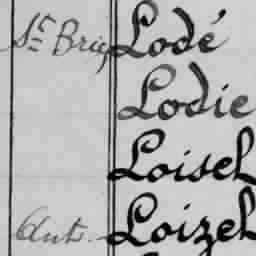 St Brieuc Lodé
Lodie
Loisel
Ant. Loizel